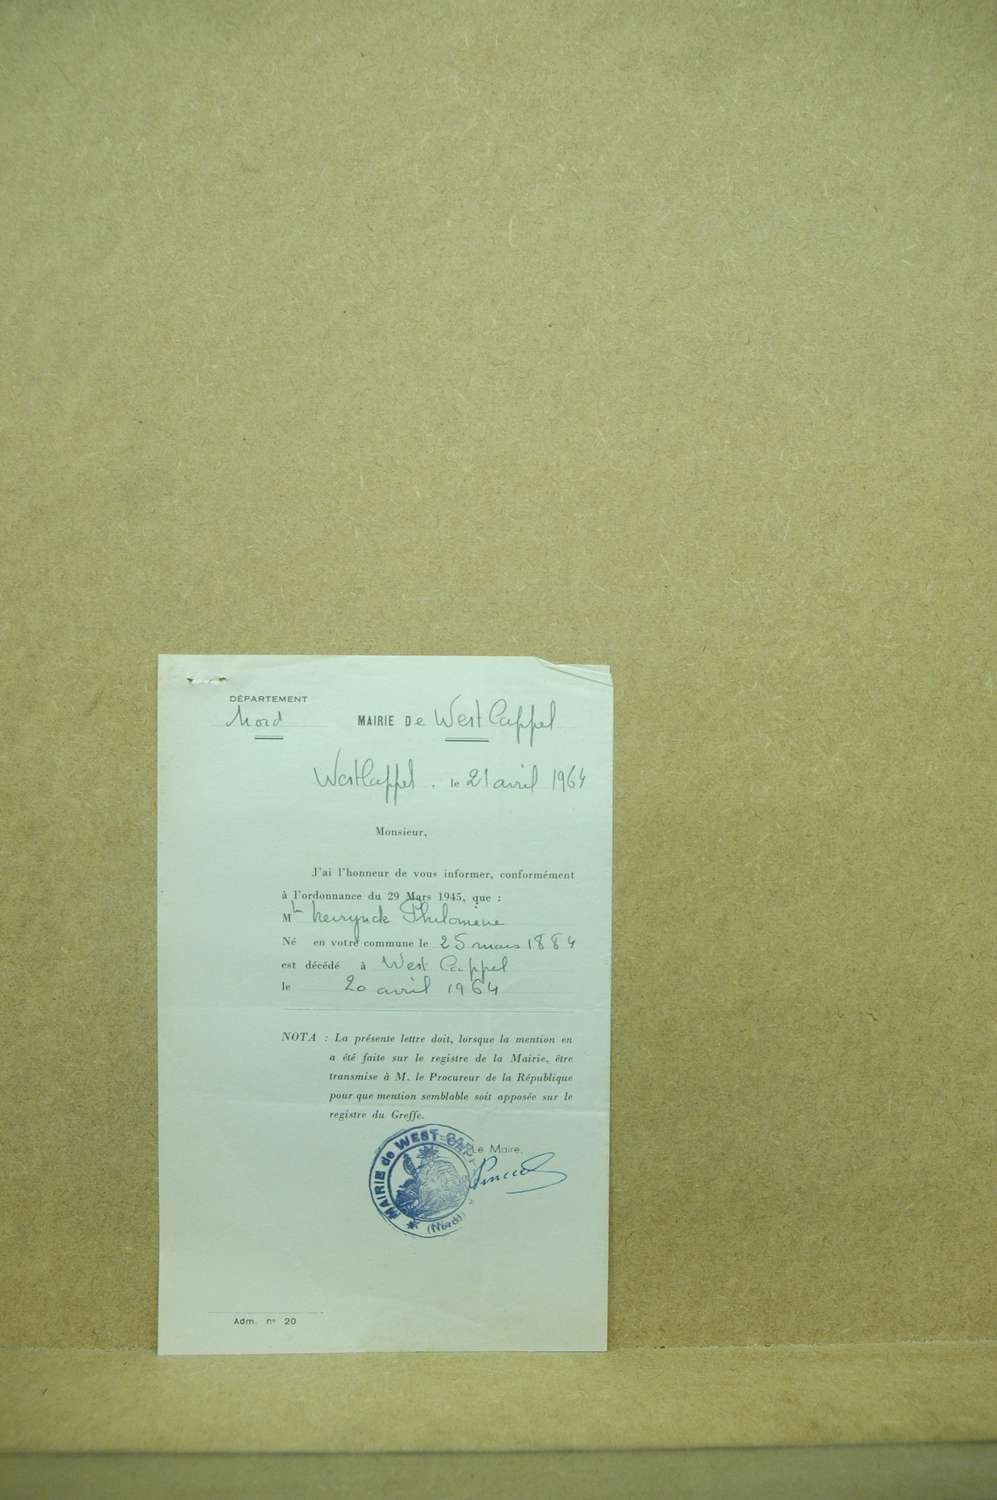 DÉPARTEMENT
Nord
MAIRIE De West Cappel
WestCappel. le 21 avril 1964
Monsieur,
J'ai l'honneur de vous informer, conformément
à l'ordonnance du 29 Mars 1945, que :
M Philomène
Né en votre commune le 25 mars 1884
est décédé à West Cappel
le 20 avril 1964
NOTA : La présente lettre doit, lorsque la mention en
a été faite sur le registre de la Mairie, être
transmise à M. le Procureur de la République
pour que mention semblable soit apposée sur le
registre du Greffe.
Le Maire,
MAIRIE de WEST-CAP
(Nord)
Adm. n° 20